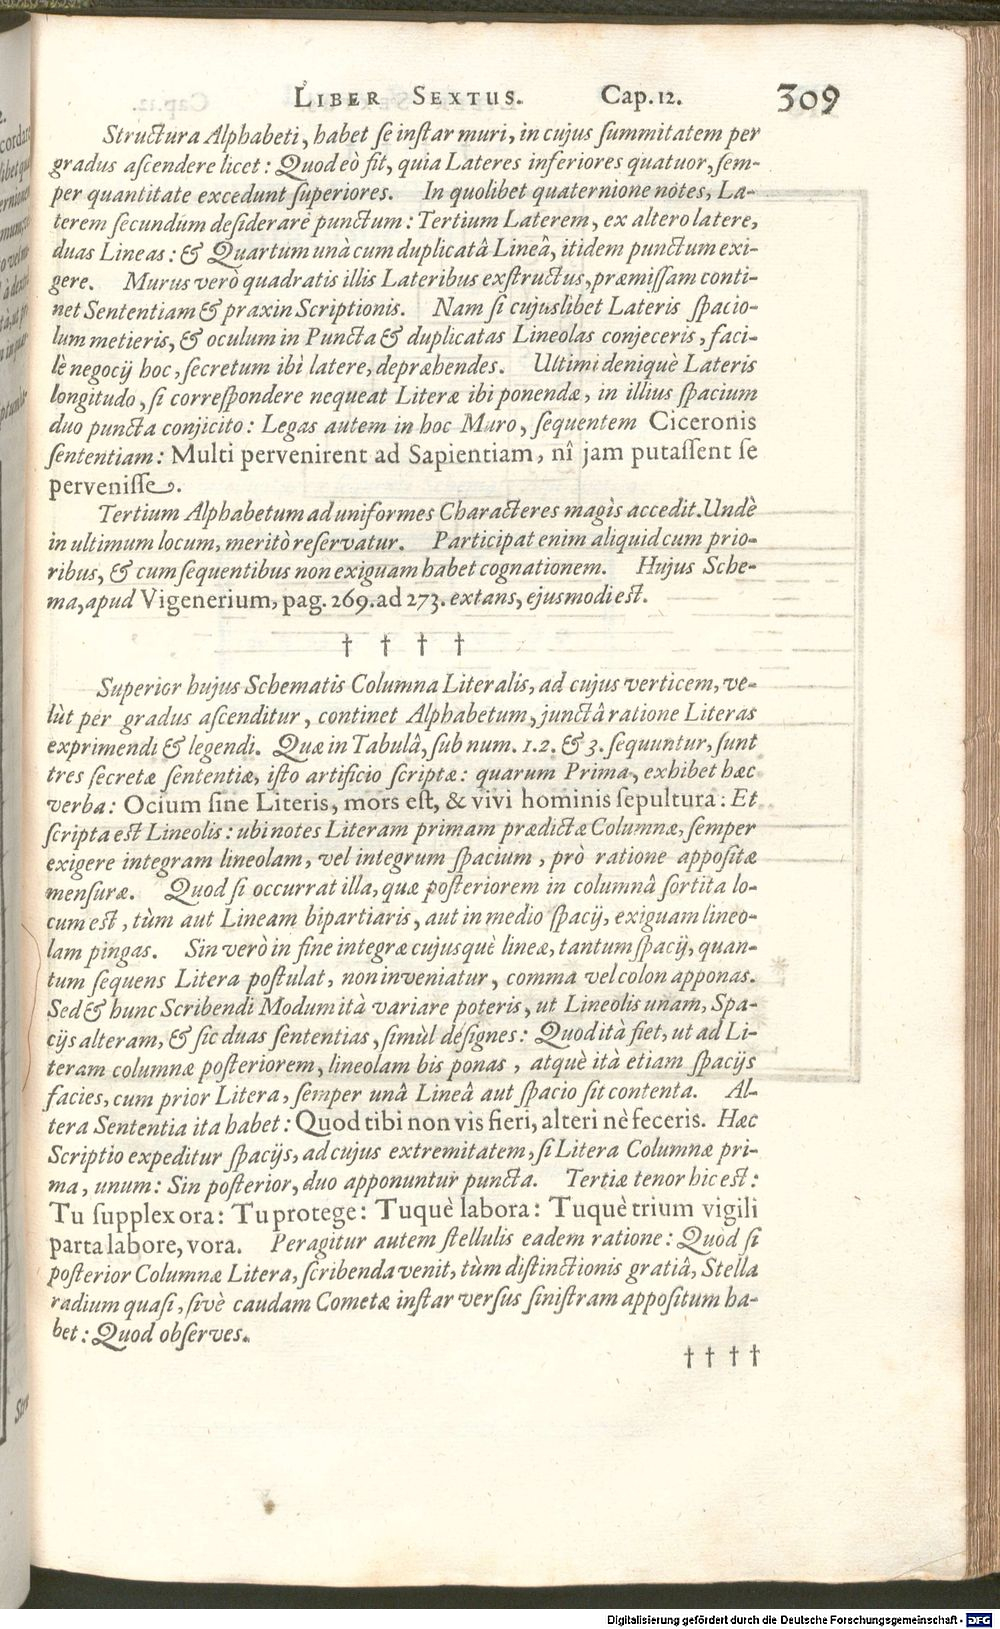 LIBER SEXTUS. Cap. 12. 309
Structura Alphabeti, habet se instar muri, in cujus summitatem per
gradus ascendere licet: Quod eò fit, quia Lateres inferiores quatuor, sem-
per quantitate excedunt superiores. In quolibet quaternione notes, La-
terem secundum desiderare punctum: Tertium Laterem, ex altero latere,
duas Lineas: & Quartum unà cum duplicatâ Lineâ, itidem punctum exi-
gere. Murus verò quadratis illis Lateribus exstructus, præmissam conti-
net Sententiam & praxin Scriptionis. Nam si cujuslibet Lateris spacio-
lum metieris, & oculum in Puncta & duplicatas Lineolas conjeceris, faci-
lè negocij hoc, secretum ibì latere, depræhendes. Ultimi deniquè Lateris
longitudo, si correspondere nequeat Literæ ibi ponendæ, in illius spacium
duo puncta conjicito: Legas autem in hoc Muro, sequentem Ciceronis
sententiam: Multi pervenirent ad Sapientiam, nî jam putassent se
pervenisse.
Tertium Alphabetum ad uniformes Characteres magìs accedit. Undè
in ultimum locum, meritò reservatur. Participat enim aliquid cum prio-
ribus, & cum sequentibus non exiguam habet cognationem. Hujus Sche-
ma, apud Vigenerium, pag. 269. ad 273. extans, ejusmodi est.
† † † †
Superior hujus Schematis Columna Literalis, ad cujus verticem, ve-
lùt per gradus ascenditur, continet Alphabetum, junctâ ratione Literas
exprimendi & legendi. Quæ in Tabulâ, sub num. 1. 2. & 3. sequuntur, sunt
tres secretæ sententiæ, isto artificio scriptæ: quarum Prima, exhibet hæc
verba: Ocium sine Literis, mors est, & vivi hominis sepultura: Et
scripta est Lineolis: ubi notes Literam primam prædictæ Columnæ, semper
exigere integram lineolam, vel integrum spacium, prò ratione appositæ
mensuræ. Quod si occurrat illa, quæ posteriorem in columnâ sortita lo-
cum est, tùm aut Lineam bipartiaris, aut in medio spacij, exiguam lineo-
lam pingas. Sin verò in fine integræ cujusquè lineæ, tantum spacij, quan-
tum sequens Litera postulat, non inveniatur, comma vel colon apponas.
Sed & hunc Scribendi Modum ità variare poteris, ut Lineolis unam, Spa-
cijs alteram, & sic duas sententias, simùl designes: Quod ità fiet, ut ad Li-
teram columnæ posteriorem, lineolam bis ponas, atquè ità etiam spacijs
facies, cum prior Litera, semper unâ Lineâ aut spacio sit contenta. Al-
tera Sententia ita habet: Quod tibi non vis fieri, alteri nè feceris. Hæc
Scriptio expeditur spacijs, ad cujus extremitatem, si Litera Columnæ pri-
ma, unum: Sin posterior, duo apponuntur puncta. Tertiæ tenor hic est:
Tu supplex ora: Tu protege: Tuquè labora: Tuquè trium vigili
parta labore, vora. Peragitur autem stellulis eadem ratione: Quod si
posterior Columnæ Litera, scribenda venit, tùm distinctionis gratiâ, Stella
radium quasi, sivè caudam Cometæ instar versus sinistram appositum ha-
bet: Quod observes.
† † † †
Digitalisierung gefördert durch die Deutsche Forschungsgemeinschaft - DFG